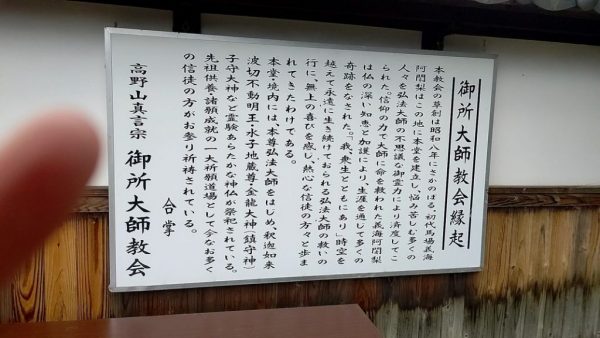 御所大師教会縁起
本教会の草創は昭和八年にさかのぼる。初代馬場義海
阿闍梨はこの地に本堂を建立し、悩み苦しむ多くの
人々を弘法大師の不思議な御霊力により済度してこ
られた。信仰の力で大師に命を救われた義海阿闍梨
は仏の深い知恵と加護により、生涯を通じて多くの
奇跡をなされた。「我、衆生とともにあり」時空を
越えて永遠に生き続けておられる弘法大師の救いの
行に、無上の喜びを感じ、熱心な信徒の方々と歩ま
れてきたわけである。
本堂・境内には、本尊弘法大師をはじめ、釈迦如来
波切不動明王・水子地蔵尊・金龍大神(鎮守神)
子守大神など霊験あらたかな神仏が祭祀されている。
先祖供養・諸願成就の一大祈願道場として、今なお多く
の信徒の方がお参り祈祷されている。
合掌
高野山真言宗 御所大師教会